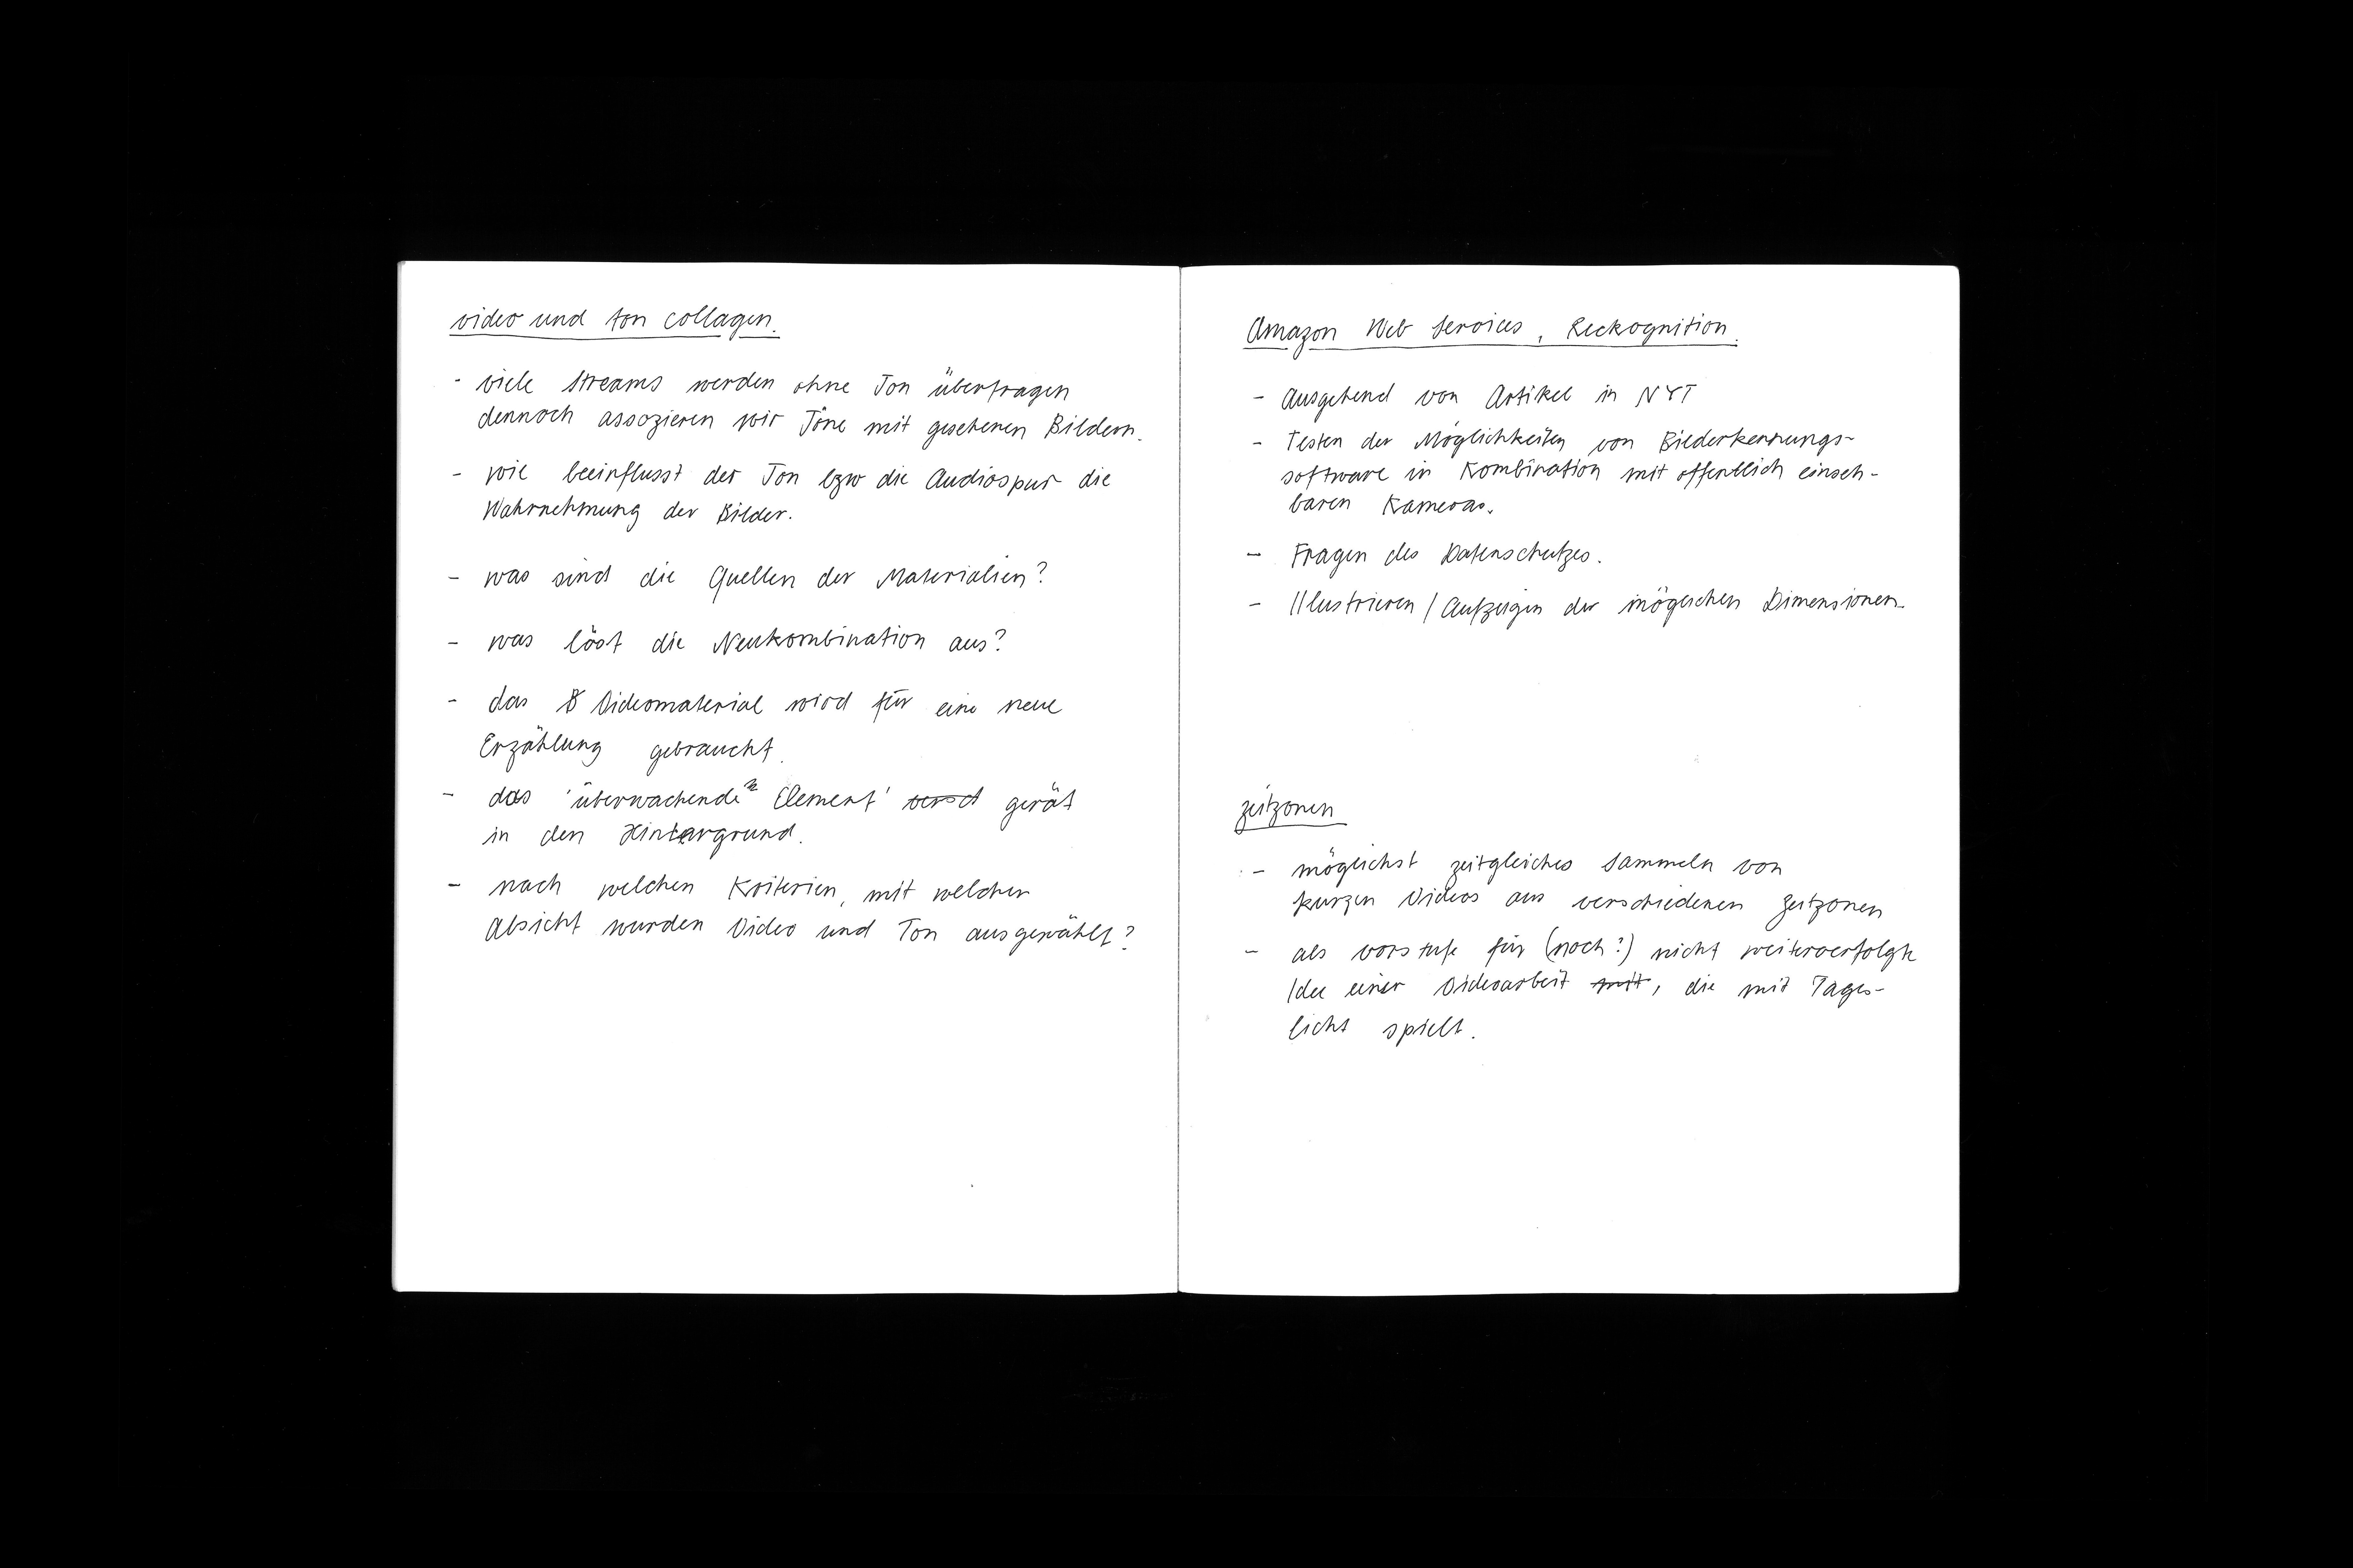 video und ton collagen.
- viele streams werden ohne Ton übertragen
dennoch assozieren wir Töne mit gesehenen Bildern.
- wie beeinflusst der Ton bzw die Audiospur die
Wahrnehmung der Bilder.
- was sind die Quellen der Materialien?
- was löst die Neukombination aus?
- das Videomaterial wird für eine neue
Erzählung gebraucht.
- das 'überwachende Element' gerät
in den Hintergrund.
- nach welchen Kriterien, mit welcher
Absicht wurden Video und Ton ausgewählt?
Amazon Web Services, Reckognition.
- Ausgehend von Artikel in NYT
- Testen der Möglichkeiten von Bilderkennungs-
software in Kombination mit öffentlich einseh-
baren Kameras.
- Fragen des Datenschutzes.
- Illustrieren / Aufzeigen der möglichen Dimensionen.
zeitzonen
- möglichst zeitgleiches sammeln von
kurzen Videos aus verschiedenen Zeitzonen
- als vorstufe für (noch?) nicht weiterverfolgte
Idee einer Videoarbeit mit, die mit Tages-
licht spielt.